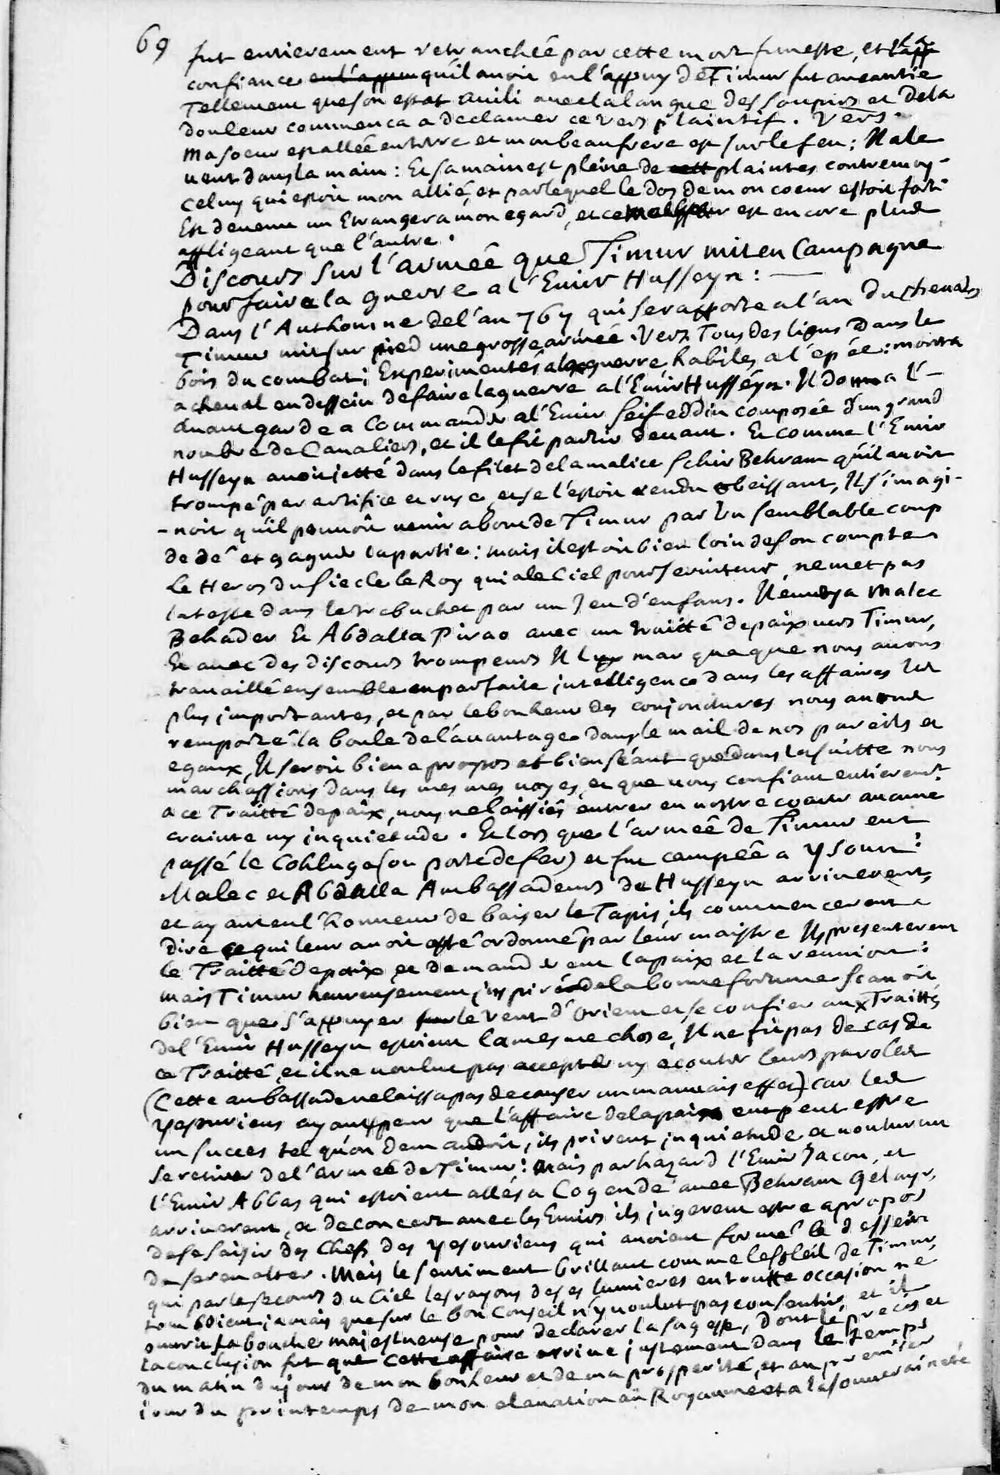 69
fut entierement retranchée par cette mort funeste, et la
confiance qu'il avoit en l'appuy de Timur fut aneantie
Tellement que son estat avili avec la langue des soupirs et de la
douleur commença a declamer ce vers plaintif. Vers.
Ma soeur est allée en terre et mon beaufrere est sur le feu; Il a le
vent dans la main: Et sa main est pleine de plaintes contre moy-
Celuy qui estoit mon allié, et par lequel le dos de mon coeur estoit fort
Est devenu un Etranger a mon egard, et ce est encore plus
affligeant que l'autre.
Discours sur l'armeê que Timur mit en Campagne
pour faire la guerre a l'Emir Husseyn:
Dans l'Authomne de l'an 767 qui se rapporte a l'an du Cheval
Timur mit sur pied une grosse armeé. Vers Tous des lions dans le
bois du combat; Experimentés a la guerre habiles a l'epée: monta
a cheval en dessein de faire la guerre a l'Emir Husséyn. Il donna l'-
avant garde a Commander a l'Emir Seifeddin composée d'un grand
nombre de Cavaliers, et il le fit partir devant. Et comme l'Emir
Husseyn avoit jetté dans le filet de la malice Schir Behram qu'il avoit
trompé par artifice et ruse, et se l'estoit rendu obeissant, Il s'imagi-
-noit qu'il pouvoit venir a bout de Timur par un semblable coup
de dé et gagner la partie: mais il estoit bien loin de son compte
Le Heros du siecle le Roy qui a le Ciel pour serviteur, ne met pas
la teste dans le trebuchet par un Jeu d'enfans. Il envoya Malec
Behader Et Abdalla Pirao avec un traitté de paix vers Timur,
Et avec des discours trompeurs Il luy marqua que nous avons
travaillé ensemble en parfaite intelligence dans les affaires les
plus importantes, et par le bonheur des conjonctures nous avons
remporté la boule de l'avantage dans le mail de nos pareils et
egaux, Il seroit bien a propos et bienséant que dans la suitte nous
marchassions dans les mesmes voyes, et que vous confiant entierem.t
a ce Traitté de paix, vous ne laissiés entrer en nostre coeur aucune
crainte ny inquietude. Et lors que l'armeê de Timur eut
passé le Cohluga (ou porte de fer) et fut campéê a Ysoun:
Malec et Abdalla Ambassadeurs de Husseyn arriverent,
et ayant eu l'honneur de baiser le Tapis, ils commencerent a
dire ce qui leur avoit esté ordonné par leur maistre Ils presenterent
le Traitté de paix et demanderent la paix et la reunion:
mais Timur heureusement inspiré de la bonne fortune scavoit
bien que s'appuyer le vent d'Orient et se confier aux Traittés
de l'Emir Husseyn estoient la mesme chose, Il ne fit pas de cas de
ce Traitté, et il ne voulut pas accepter ny ecouter leurs paroles
(Cette ambassade ne laissa pas de causer un mauvais effet) car les
Yesouriens ayant peur que l'affaire de la paix eut peut estre
un succes tel qu'on demandoit, ils prirent inquietude et voulurent
se retirer de l'armeé de Timur: Mais par hazard l'Emir Jacou, et
l'Emir Abbas qui estoient allés a Cogende avec Behram Gelayr,
arriverent, et de concert avec les Emirs ils jugerent estre a propos
de se saisir des Chefs des Yesouriens qui avoient formé le dessein
de s'en aller. Mais le sentiment brillant comme le soleil de Timur,
qui par le secours du Ciel les rayons de ses lumieres en toutte occasion ne
tomboient jamais que sur le bon Conseil n'y voulut pas consentir, et il
ouvrit la bouche majestueuse pour declarer la sagesse, dont le precis et
la conclusion fut que cette affaire arrive justement dans le temps
du matin du jour de mon bonheur et de ma prosperité, et au premier
jour du printemps de mon elevation au Royaume et a la souveraineté